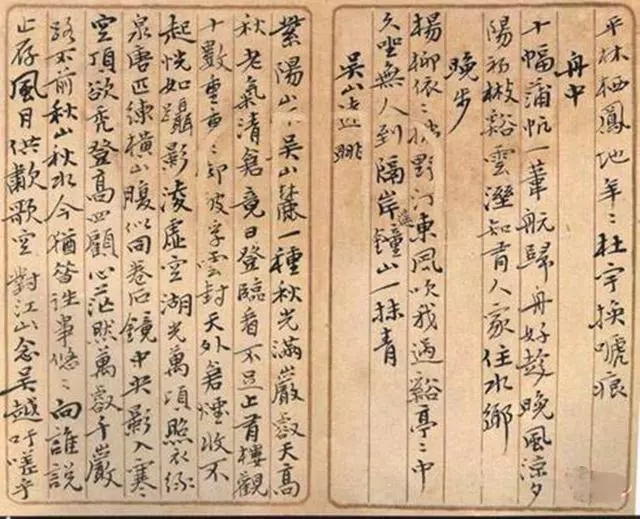 平林栖鳳地年〻杜宇換啼痕
舟中
十幅蒲帆一葦航歸舟好趁晚風涼夕
陽初斂谿雲溼知有人家住水鄉
晚步
楊柳依〻拂野汀東風吹我過谿亭〻中
久坐無人到隔岸鐘山一抹青
吳山遠眺
紫陽山下吳山麓一種秋光滿巖壑天高
秋老氣清蒼竟日登臨看不足上有樓觀
十數重重〻印波字雲封天外蒼煙收不
起恍如躡影淩虛空湖光萬頃照衣綠
泉唐匹練橫山腹似開卷石鏡中央影入寒
空頂欲禿登高四顧心茫然萬壑千巖
路不前秋山秋水今猶昔往事悠〻向誰說
止存風月供歌空對江山念吳越吁嗟乎